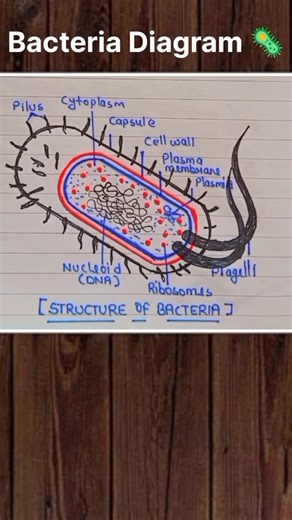 Bacteria Diagram 🦠
Pilus
Cytoplasm
Capsule
Cell wall
Plasma
membrane
Plasmid
Nucleoid
(DNA)
Ribosomes
Flagelli
[STRUCTURE OF BACTERIA]